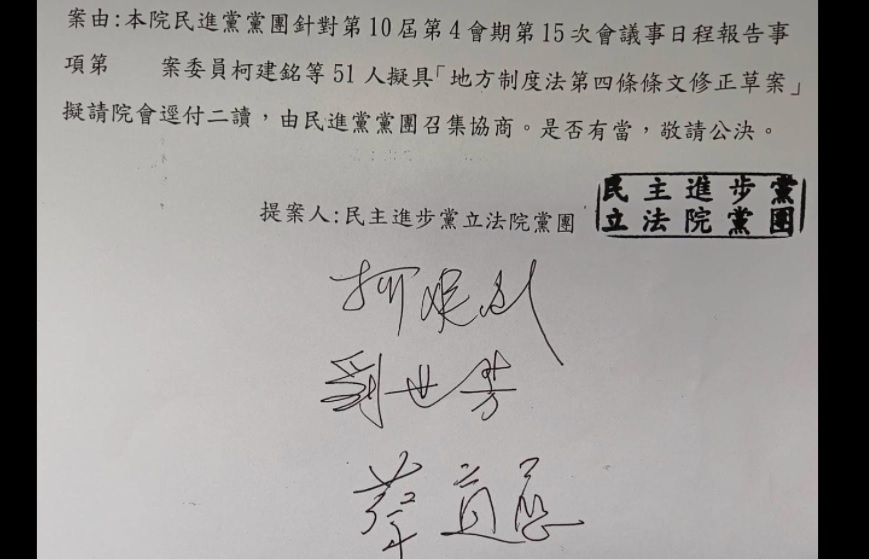 案由:本院民進黨黨團針對第10屆第4會期第15次會議事日程報告事
項第　　案委員柯建銘等51人擬具「地方制度法第四條條文修正草案」
擬請院會逕付二讀，由民進黨黨團召集協商。是否有當，敬請公決。
提案人:民主進步黨立法院黨團
民主進步黨
立法院黨團
柯建銘
劉世芳
蔡適應